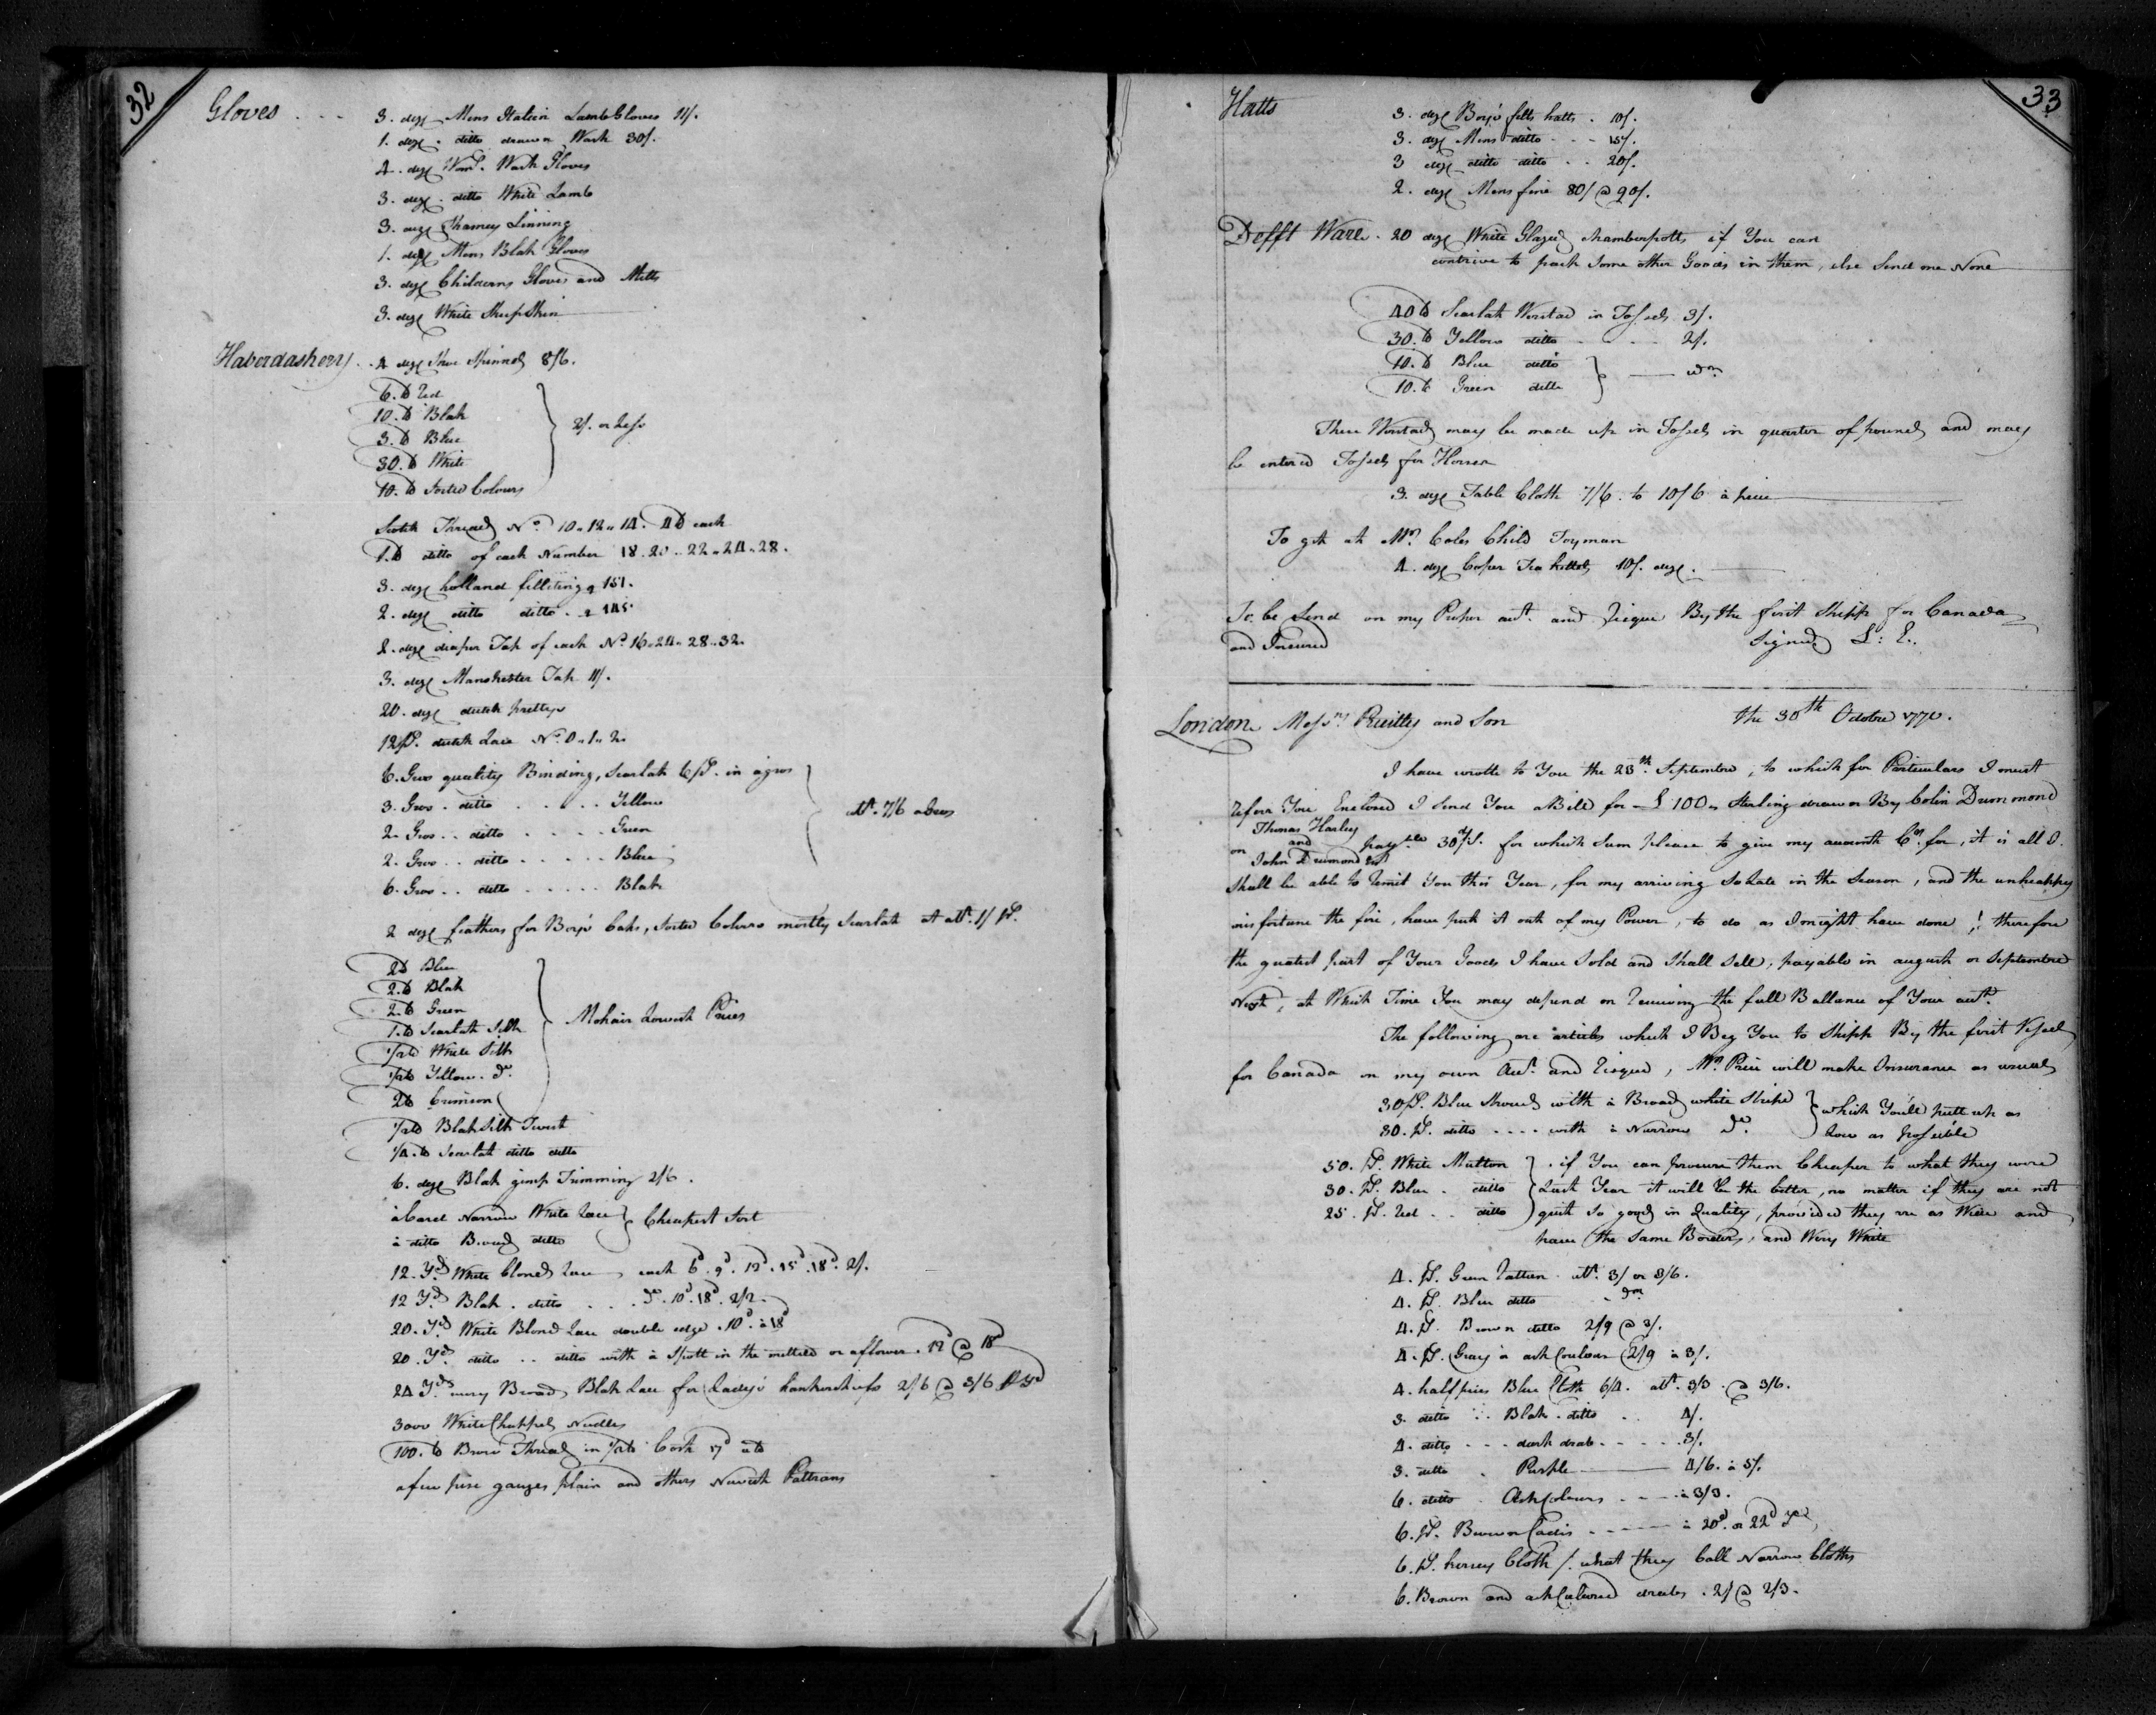 32
Gloves . . . 3. doz Mens Italien Lamb Gloves 11/.
1. doz . ditto drawn Wash 30/.
4. doz Wom.s Wash Gloves
3. doz . ditto White Lamb
3. doz Shamey Linning
1. doz Mens Blak Gloves
3. doz Childerns Gloves and Mitts
3. doz White Sheep Skin
Haberdashery . . 4 doz Shoe 8/6.
6. lb Red
10. lb Blak
3. lb Blue
30. lb White
10. lb Sorted Colours
2/. or Less
Scotch Thread No. 10 " 12 " 14. 4 lb each
1. lb ditto of each Number 18. 20 .. 22 " 24 " 28.
3. doz holland filliting 151.
2. doz ditto ditto . 145.
2. doz diaper Tap of each No. 16 " 24 " 28 " 32.
3. doz Manchester Tap 11/.
20. doz dutch prettys
12 ps. dutch Lace No. 0 " 1 " 2.
6. Gros quality Binding, Scarlak 6 ps. in a gros
3. Gros . ditto . . . . . Yellow
2. Gros . . ditto . . . . . Green
2. Gros . . ditto . . . . . Blue
6. Gros . . ditto . . . . . Blak
att. 7/6 a Gros
2 doz feathers for Boys Caks, Sorted Colours mostly Scarlak at att. 1/ ps.
2 lb Blue
2. lb Blak
2. lb Green
1. lb Scarlak Silk
1/2 lb White Silk
1/2 lb Yellow . do.
2 lb Crimson
Mohair Lowest Prices
1/2 lb Blak Silk Twist
1/4. lb Scarlak ditto ditto
6. doz Blak gimp Trimming 2/6.
à Card Narrow White Lace
à ditto Broad ditto
Cheapest Sort
12. Yds White Blond Lace each 6d. 9d. 12d. 15d. 18d. 2/.
12 Yds Blak . ditto . . . do. 10d. 18d. 2/2.
20. Yds White Blond Lace double edge . 10d. à 18d
20. Yds ditto . . ditto with à Spott in the mittled or a flower . 12d @ 18d
24 Yds very Broad Blak Lace for Ladys hankerchefs 2/6 @ 3/6 p Yd
3000 White Chappel Needles
100. lb Brow Thread in 1/2 lb Cost 17d a lb
a few pise gauzes plain and others Newest Pattrans
33
Hatts
3. doz Boys felts hatts . 10/.
3. doz Mens ditto . . . 15/.
3 doz ditto ditto . . 20/.
2. doz Mens fine 80/ @ 90/.
Defft Ware . 20 doz White Glazed Chamberpotts if You can
contrive to pack Some other Goods in them, else Send me None
40 lb Scarlak Worstad in Tossels 3/.
30. lb Yellow ditto . . . . 2/.
10. lb Blue ditto
10. lb Green ditto
These Worstads may be made up in Tossels in quarter of pounds and may
be entered Tossels for Horses
3. doz Table Cloth 7/6. to 10/6 à piece
To get at Mr. Coles Child Toyman
4. doz Coper Tea kettels 10/. doz.
To be Send on my Proper act. and Risque By the first Shipp for Canada
and Insured Signed L: E.
London Messrs. Priettly and Son the 30th Octobre 1770.
I have wrotte to You the 23th. Septembre, to which for Perticulars I must
Refere You Enclosed I Send You a Bill for £ 100 " Sterling drawn By Colin Drummond
on Thomas Harley and John Drumond Esqr payble 30 d/s. for which Sum please to give my accounth Cr. for, it is all I
Shall be able to Remit You this Year, for my arriving So Late in the Season, and the unhappy
misfortune the fire, have put it out of my Power, to do as I might have done ! therefore
the greatest part of Your Goods I have Sold and Shall Sell, payable in august or Septembre
Next, at Which Time You may depend on Receiving the full Ballance of Your act.
The following are articles which I Beg You to Shipp By the first Vessel
for Canada on my own Act. and Risque, Mr. Price will make Insurance as usual
30 ps. Blue Strouds with à Broad white Stripe
30. ps. ditto . . . . with à Narrow do.
which You'll putt up as
Low as possible
50. ps. White Multon
30. ps. Blue . ditto
25. ps. Red . . ditto
. if You can procure them Cheaper to what they were
Last Year it will be the better, no matter if they are not
quit So good in Quality, provided they are as Wide and
have the Same Borders, and Very White
4. ps. Green Ratteen . att. 3/ or 3/6.
4. ps. Blue ditto do
4. ps. Brown ditto 2/9 @ 3/.
4. ps. Gray or ash Couloar 2/9 à 3/.
4. half pieces Blue Cloth 6/4. att. 3/3 . @ 3/6.
3. ditto . . . Blak . ditto . . 4/.
4. ditto . . . dark drab . . . . . 3/.
3. ditto . Purple 4/6. à 5/.
6. ditto . Ash Colours . . . . à 3/3.
6. ps. Brown Cadis . . . . à 20d. or 22d Yd
6. ps. kersey Cloth /. what they Call Narrow Cloths
6. Brown and ash Coloured drabs . 2/ @ 2/3.